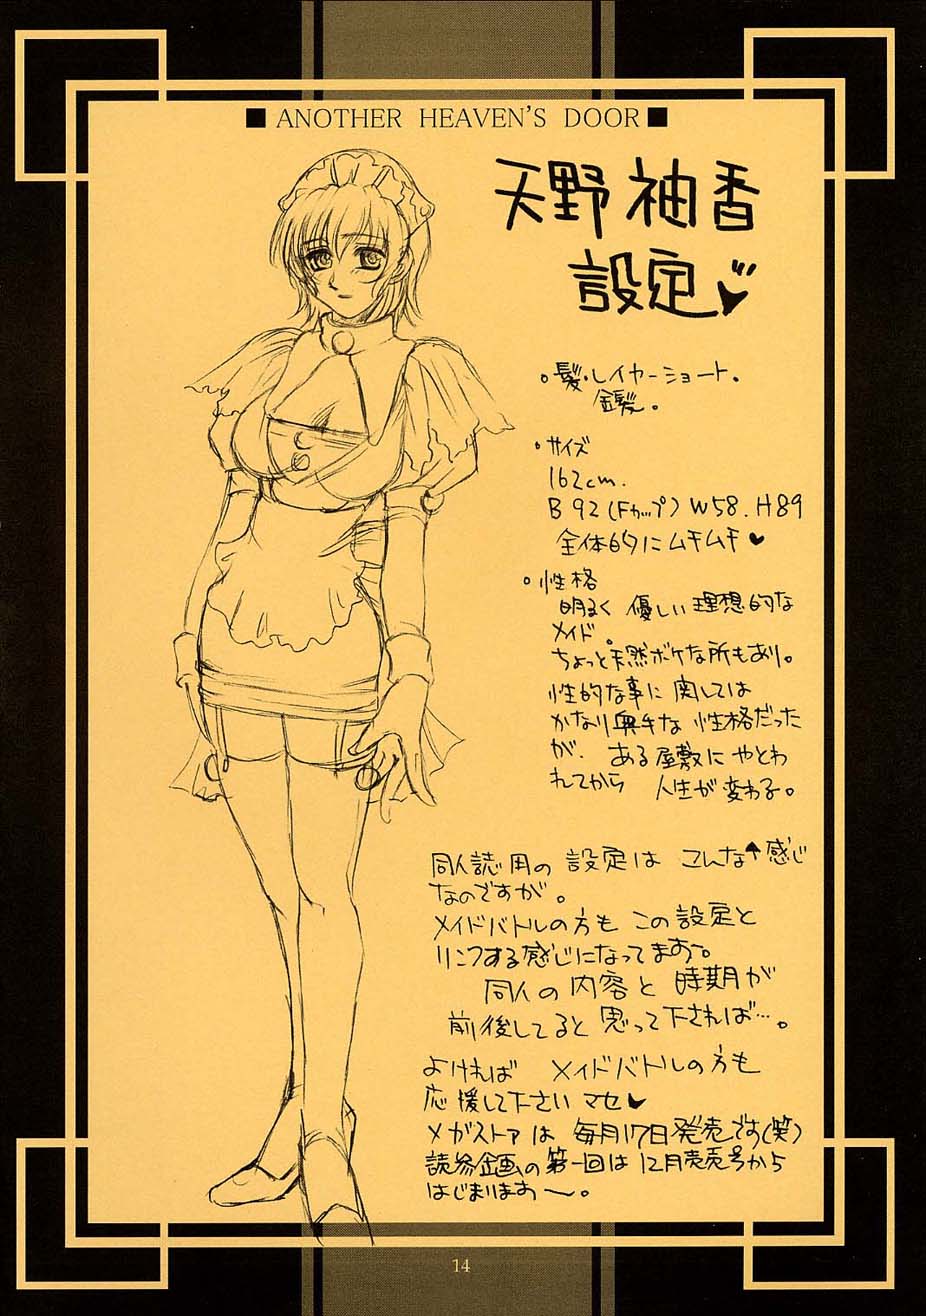 ■ ANOTHER HEAVEN'S DOOR ■
天野 袖香
設定
・髪・レイヤーショート。
金髪。
・サイズ
162cm.
B 92 (Fカップ) W58. H89
全体的にムチムチ♥
・性格
明るく 優しい 理想的な
メイド。
ちょっと天然ボケな所もあり。
性的な事に関しては
かなり奥手な 性格だった
が、ある屋敷に やとわ
れてから 人生が変わる。
同人誌用の 設定は こんな↑感じ
なのですが。
メイドバトルの方も この設定と
リンクする感じになってます。
同人の 内容と 時期が
前後してると 思って下されば…。
よければ メイドバトルの方も
応援して下さいマセ♥
メガストアは 毎月17日発売です(笑)
読参企画の第一回は 12月売号から
はじまりますー。
14